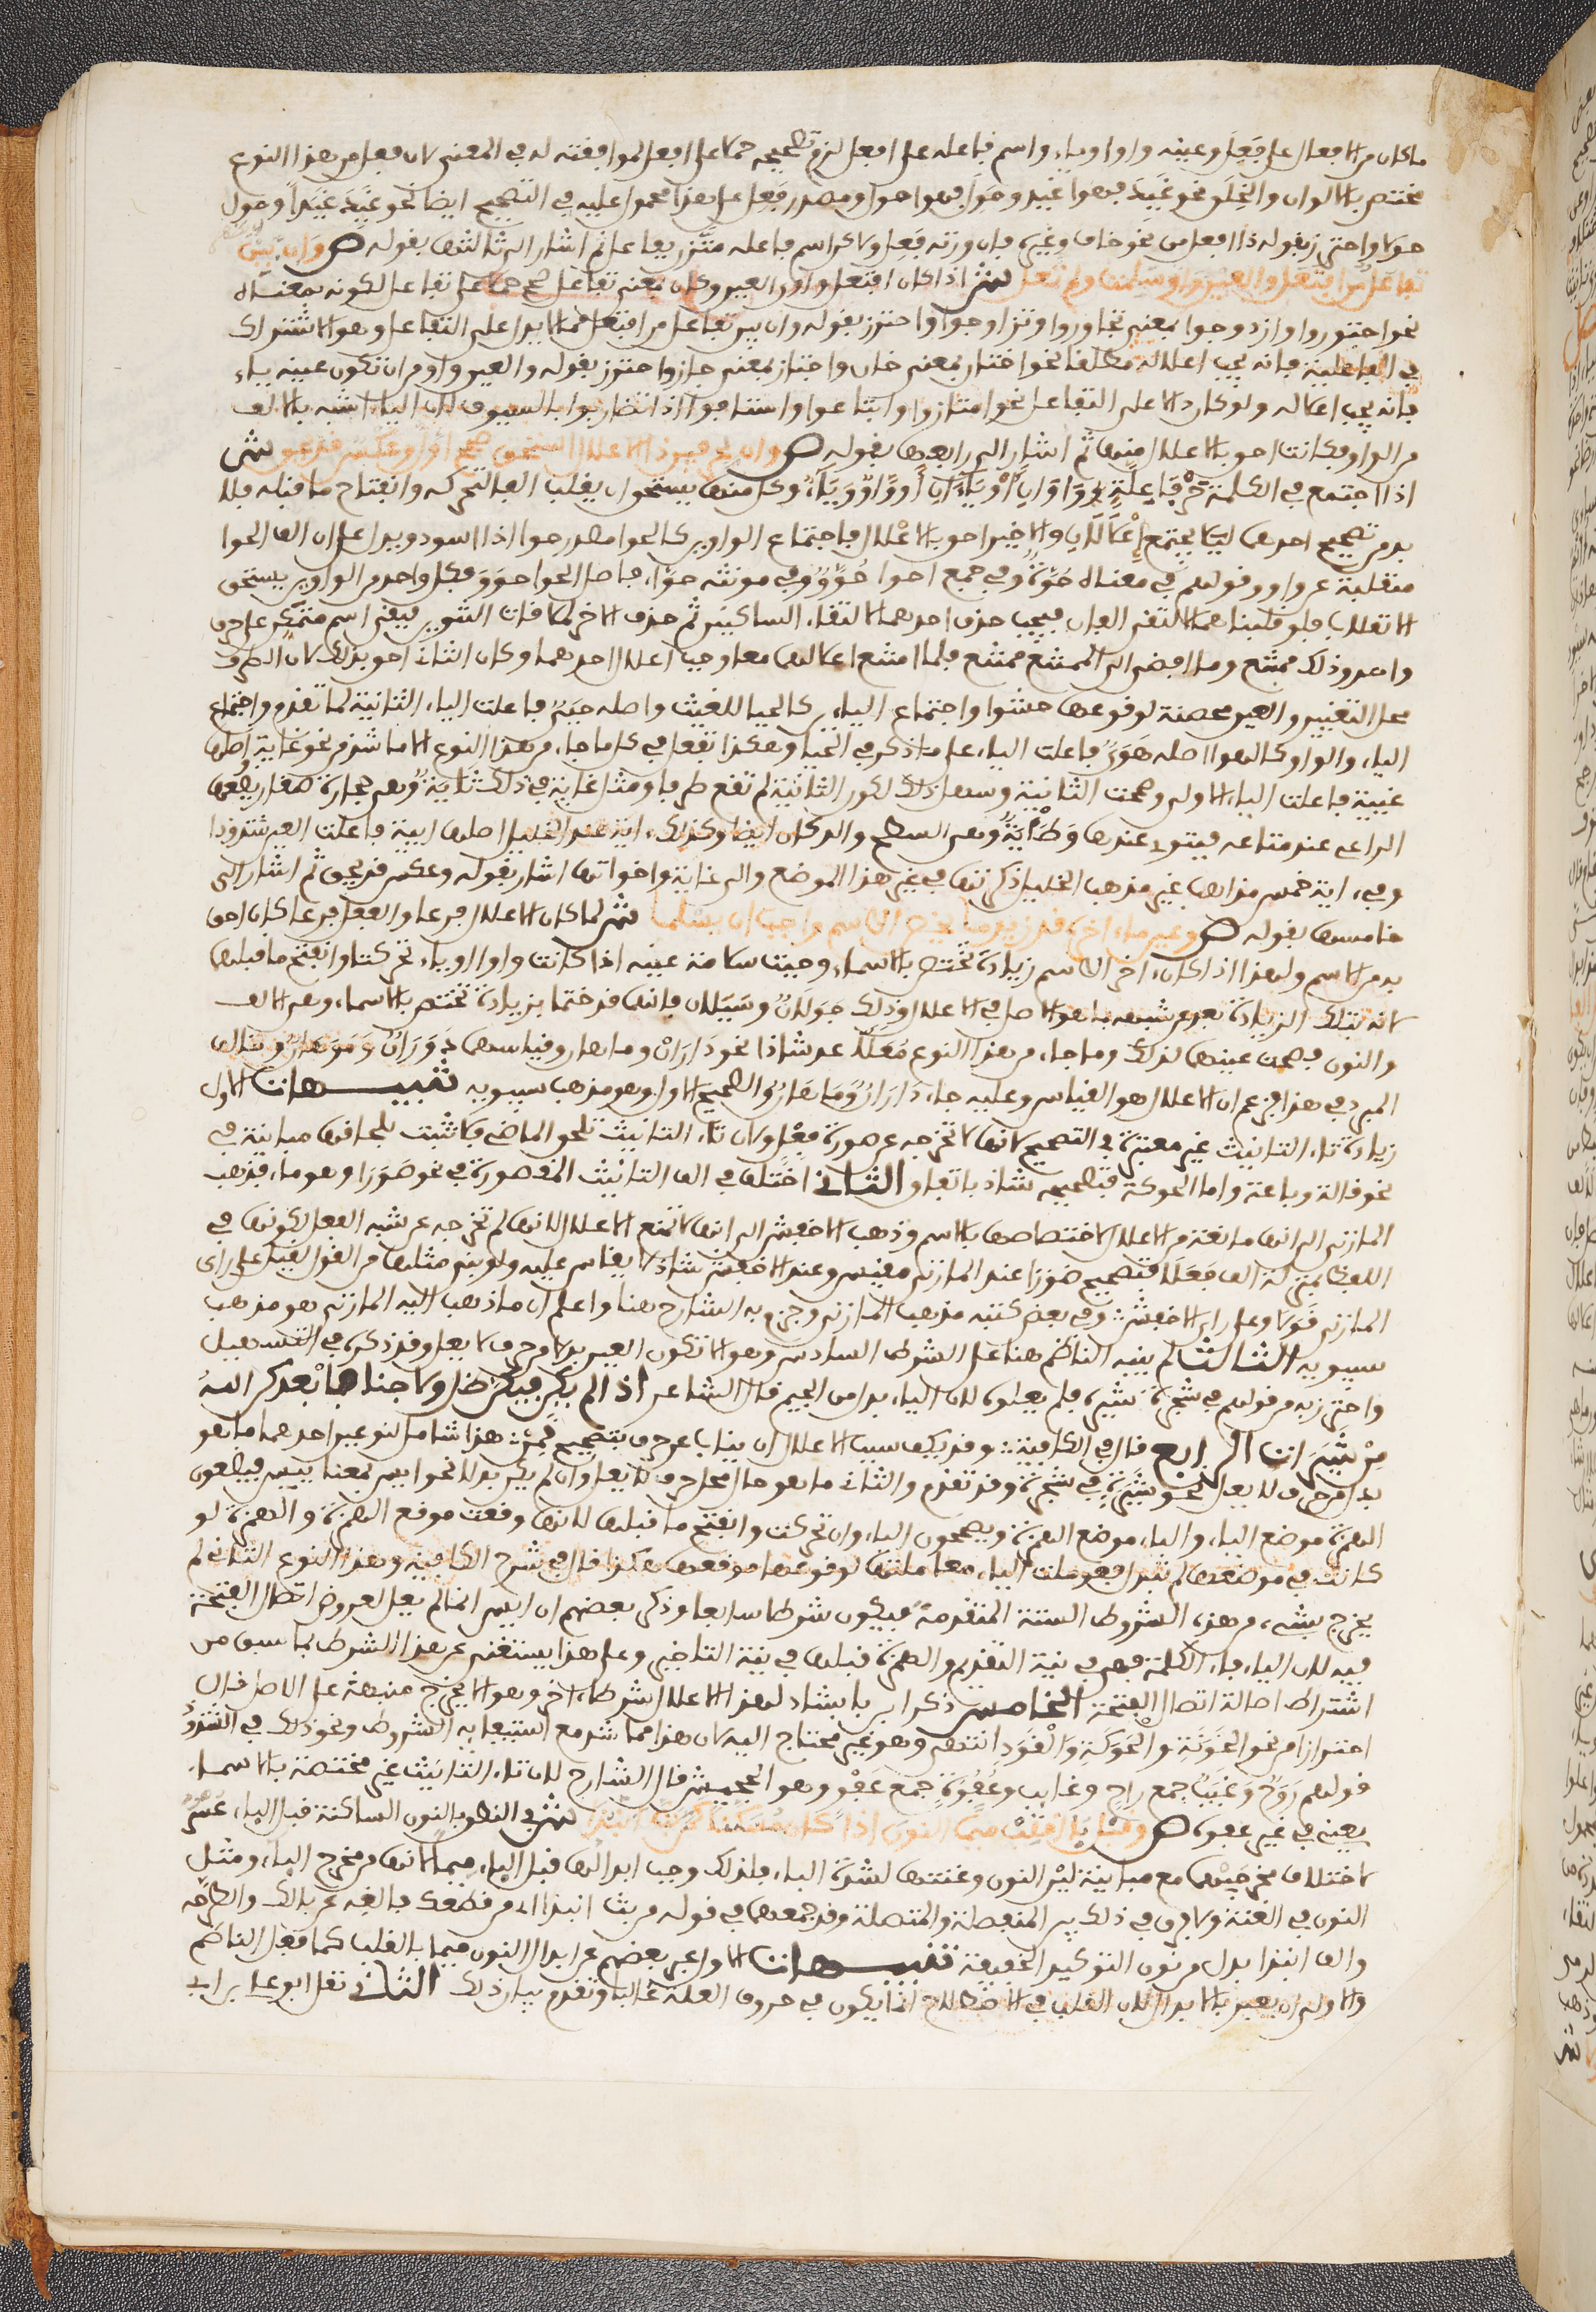 ما كان من الافعال على فعل وعينه واوا وياء واسم فاعله على افعل لزم تصحيحه حملا على افعل لموافقته له في المعنى لان فعل من هذا النوع
مختص بالالوان والخلق نحو غيد فهو اغيد وحول فهو احول ومصدر فعل على هذا محمول عليه في التصحيح ايضا نحو غيد غيدا وحول
حولا واحترز بقوله ذا افعل من نحو خاف وغيره فان وزنه فعل ولاكن اسم فاعله متزن بفاعل ثم اشار الى ثالثها بقوله ص وان يبن
تفاعل من افتعل والعين واو سلمت ولم تعل ش اذا كان افتعل واوي العين وكان بمعنى تفاعل صح حملا على تفاعل لكونه بمعناه
نحو اجتوروا وازدوجوا بمعنى تجاوروا وتزاوجوا واحترز بقوله وان يبن تفاعل من افتعل مما لا يدل على التفاعل وهو الاشتراك
في الفاعلية فانه يجب اعلاله مطلقا نحو اختان بمعنى خان واجتاز بمعنى جاز واحترز بقوله والعين واو من ان تكون عينه ياء
فانه يجب اعلاله ولو كان دالا على التفاعل نحو امتازوا وابتاعوا واستافوا اذا تضاربوا بالسيوف لان الياء اشبه بالالف
من الواو فكانت احق بالاعلال منها ثم اشار الى رابعها بقوله ص وان لحرفين ذا الاعلال استحق صحح اول وعكس قد يحق ش
اذا اجتمع في الكلمة حرفا علة واوان او ياءان او واو وياء وكل منهما يستحق ان يقلب الفا لتحركه وانفتاح ما قبله فلا
بد من تصحيح احدهما ليلا يجتمع اعلالان والاخير احق بالاعلال فاجتماع الواوين كالحوا مصدر حوا اذا اسود ويدل على ان الف الحوا
منقلبة عن واو وقولهم في معناه حوة وفي جمع احوا حو وفي مونثه حوا، فاصل الحوا حوو فكل واحد من الواوين يستحق
الانقلاب فلو قلبناهما لالتقى الفان فيجب حذف احدهما لالتقاء الساكنين ثم حذف الاخر لملاقات التنوين فيبقى اسم متمكن على حرف
واحد وذلك ممتنع وما افضى الى الممتنع ممتنع فلما امتنع اعلالهما معا وجب اعلال احدهما وكان الثاني احق بذلك لان الطرف
محل التغيير والعين محصنة لوقوعها حشوا واجتماع الياءين كالحيا للغيث واصله حيي فاعلت الياء الثانية لما تقدم واجتماع
الياء والواو كالهوا اصله هوي فاعلت الياء على ما ذكر في الحيا وهكذا تفعل في كل ما جاء من هذا النوع الا ما شذ من نحو غاية اصلها
غيية فاعلت الياء الاولى وصحت الثانية وسهل ذلك كون الثانية لم تقع طرفا ومثل غاية في ذلك ثاية وهي حجارة صغار يضعها
الراعي عند متاعه فيثوي عندها وطاية وهي السطح والدكان ايضا وكذلك ءاية عند الخليل اصلها ايية فاعلت العين شذوذا
وفي ءاية خمس مذاهب غير مذهب الخليل ذكرتها في غير هذا الموضع والى غاية واخواتها اشار بقوله وعكس قد يحق ثم اشار الى
خامسها بقوله ص وعين ما اخره قد زيد ما يخص الاسم واجب ان يسلما ش لما كان الاعلال فرعا والفعل فرعا كان احق
به من الاسم ولهذا اذا كان ءاخر الاسم زيادة تختص بالاسماء وجبت سلامة عينه اذا كانت واوا او ياء تحركتا وانفتح ما قبلها
لانه بتلك الزيادة بعد عن شبهه بما هو الاصل في الاعلال وذلك جولان وسيلان فانهما قد ختما بزيادة تختص بالاسماء وهي الالف
والنون فصحت عينهما لذلك وما جاء من هذا النوع معلا عد شاذا نحو داران وماهان وقياسهما دوران وموهان وخالف
المبرد في هذا فزعم ان الاعلال هو القياس وعليه جاء داران وماهان والصحيح الاول وهو مذهب سيبويه تنبيهات الاول
زيادة تاء التانيث غير معتبرة في التصحيح لانها لا تخرجه عن صورة فعل ولان تاء التانيث تلحق الماضي فلا يثبت بلحاقها مباينة في
نحو قالة وباعة واما الحوكة فتصحيحه شاذ باتفاق الثاني اختلف في الف التانيث المقصورة في نحو صورى وهو ماء فذهب
المازني الى انها مانعة من الاعلال لاختصاصها بالاسم وذهب الاخفش الى انها لا تمنع الاعلال لانها لم تخرجه عن شبه الفعل لكونها في
اللفظ بمنزلة الف فعلا فتصحيح صورى عند المازني مقيس وعند الاخفش شاذ لا يقاس عليه ولو بني مثلها من القول لقيل على راي
المازني قولا وعلى راي الاخفش: وفي بعض كتبه مذهب المازني وجزم به الشارح هنا واعلم ان ما ذهب اليه المازني هو مذهب
سيبويه الثالث لم ينبه الناظم هنا على الشرط السادس وهو الا تكون العين بدلا من حرف لا يعل وقد ذكره في التسهيل
واحترز به من قولهم في شجرة شيرة فلم يعلوه لان الياء بدل من الجيم قال الشاعر اذا لم يكن فيكن ظل ولا جنا فابعدكن الله
من شيرات الرابع قال في الكافية: وقد يكف سبب الاعلال ان يناب عن حرف بتصحيح قمن: هذا شامل لنوعين احدهما ما هو
بدل من حرف لا يعل نحو شيرة في شجرة وقد تقدم والثاني ما هو حال محل حرف لا يعل وان لم يكن بدلا نحو ايس بمعنى يئس فيضعون
الهمزة موضع الياء والياء موضع الهمزة ويصححون الياء وان تحركت وانفتح ما قبلها لانها وقعت موقع الهمزة والهمزة لو
كانت في موضعها لم تبدل فعوملت الياء معاملتها لوقوعها موقعها هكذا قال في شرح الكافية وهذا النوع الثاني لم
يخرج بشيء من هذه الشروط الستة المتقدمة فيكون شرطا سابعا وذكر بعضهم ان ايس انما لم يعل لعروض اتصال الفتحة
فيه لان الياء فاء الكلمة فهي في نية التقديم والهمزة قبلها في نية التاخير وعلى هذا يستغنى عن هذا الشرط بما سبق من
اشتراط اصالة اتصال الفتحة الخامس ذكر ابن بابشاد لهذا الاعلال شرطا ءاخر وهو الا يخرج منبهة على الاصل قال
احترازا من نحو الخونة والحوكة والقود انتهى وهو غير محتاج اليه لان هذا مما شذ مع استيفائه الشروط ونحو ذلك في الشذوذ
قولهم روح وغيب جمع رايح وغايب وعفوة جمع عفو وهو الجحش قال الشارح لان تاء التانيث غير مختصة بالاسماء
يعني في غير عفوة ص وقبل با اقلب ميما النون اذا كان مسكنا كمن بت انبذا ش في النطق بالنون الساكنة قبل الباء عسر
لاختلاف مخرجيهما مع مباينة لين النون وغنتها لشدة الباء فلذلك وجب ابدالها قبل الباء ميما لانها من مخرج الباء ومثل
النون في الغنة ولا فرق في ذلك بين المنفصلة والمتصلة وقد جمعهما في قوله من بت انبذا اي من قطعك فالغه عن بالك واطرحه
والف انبذا بدل من نون التوكيد الخفيفة تنبيهات الاول عبر بعضهم عن ابدال النون ميما بالقلب كما فعل الناظم
والاولى ان يعبر بالابدال لان القلب في الاصطلاح انما يكون في حروف العلة غالبا وتقدم بيان ذلك الثاني نقل ابو علي بن ابي